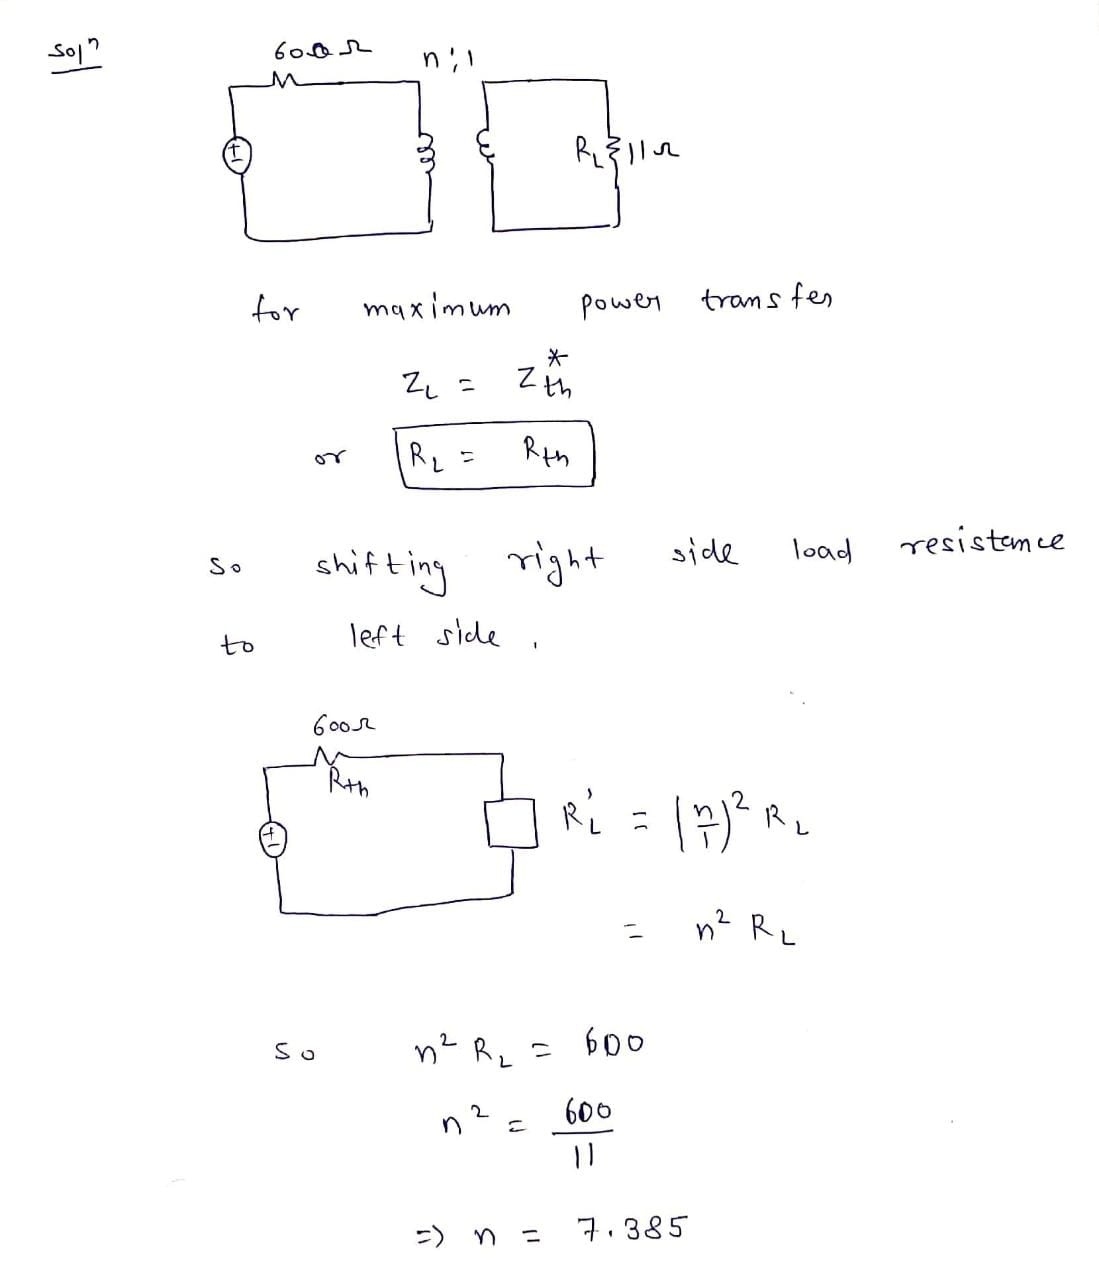 Solⁿ
600Ω n:1
+
R_L 11Ω
for maximum power transfer
Z_L = Z*_th
or R_L = R_th
so shifting right side load resistance
to left side,
600Ω
R_th
+ R'_L = (n/1)² R_L
= n² R_L
so n² R_L = 600
n² = 600/11
=> n = 7.385